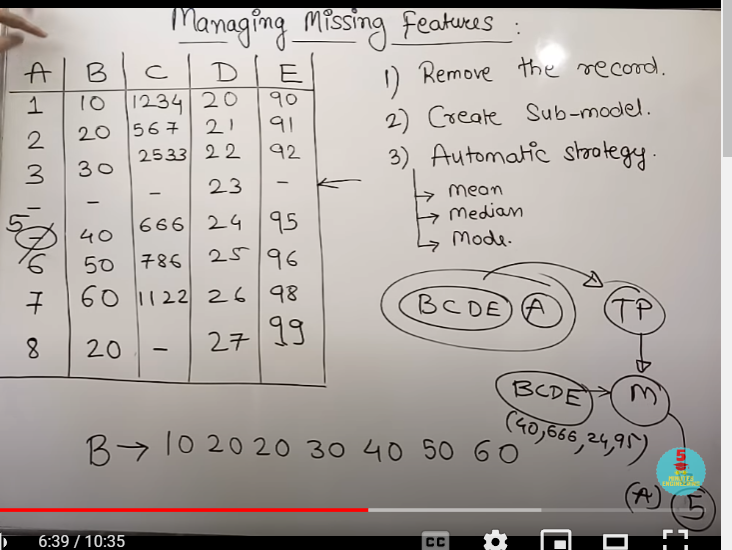 Managing Missing Features :
A B C D E
1 10 1234 20 90
2 20 567 21 91
3 30 2533 22 92
- - - 23 -
5 40 666 24 95
6 50 786 25 96
7 60 1122 26 98
8 20 - 27 99
1) Remove the record.
2) Create Sub-model.
3) Automatic strategy.
mean
median
Mode.
BCDE A TP
BCDE M
(40,666,24,95)
(A) 5
B → 10 20 20 30 40 50 60
5
6:39 / 10:35
CC